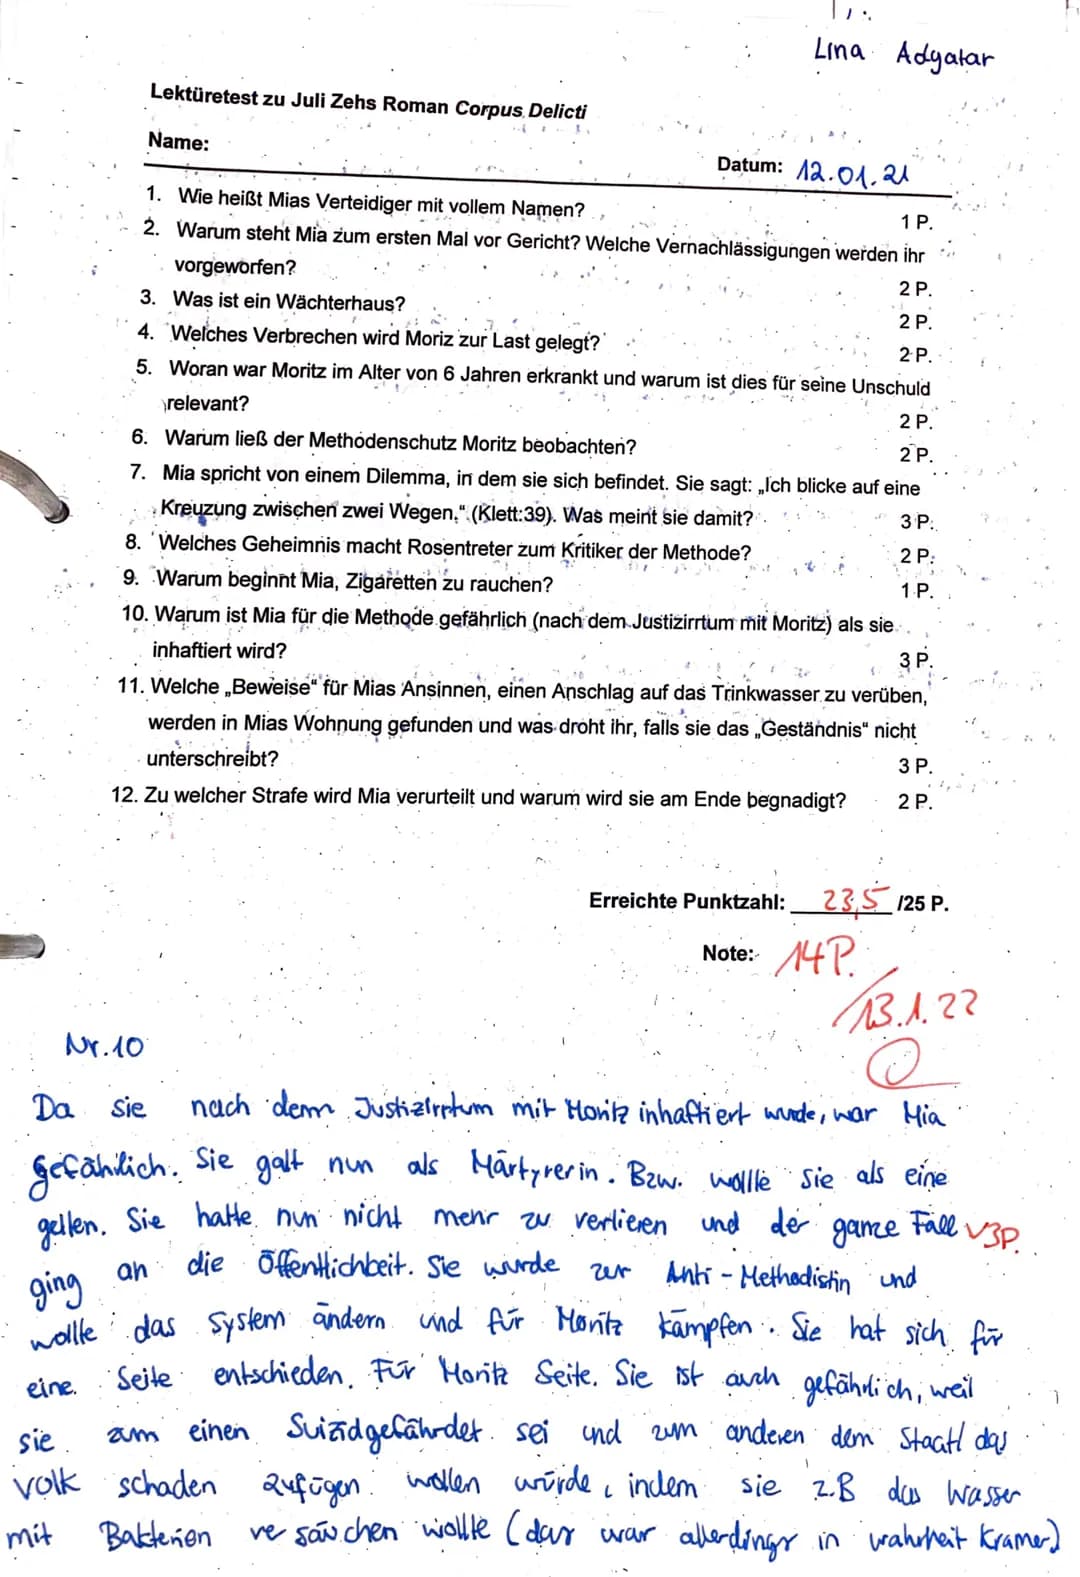 Lina Adyatar
Lektüretest zu Juli Zehs Roman Corpus Delicti
Name:
Datum: 12.01.21
1. Wie heißt Mias Verteidiger mit vollem Namen? 1 P.
2. Warum steht Mia zum ersten Mal vor Gericht? Welche Vernachlässigungen werden ihr
vorgeworfen? 2 P.
3. Was ist ein Wächterhaus? 2 P.
4. Welches Verbrechen wird Moriz zur Last gelegt? 2 P.
5. Woran war Moritz im Alter von 6 Jahren erkrankt und warum ist dies für seine Unschuld
relevant? 2 P.
6. Warum ließ der Methodenschutz Moritz beobachten? 2 P.
7. Mia spricht von einem Dilemma, in dem sie sich befindet. Sie sagt: „Ich blicke auf eine
Kreuzung zwischen zwei Wegen." (Klett:39). Was meint sie damit? 3 P.
8. Welches Geheimnis macht Rosentreter zum Kritiker der Methode? 2 P.
9. Warum beginnt Mia, Zigaretten zu rauchen? 1 P.
10. Warum ist Mia für die Methode gefährlich (nach dem Justizirrtum mit Moritz) als sie
inhaftiert wird? 3 P.
11. Welche „Beweise" für Mias Ansinnen, einen Anschlag auf das Trinkwasser zu verüben,
werden in Mias Wohnung gefunden und was droht ihr, falls sie das „Geständnis" nicht
unterschreibt? 3 P.
12. Zu welcher Strafe wird Mia verurteilt und warum wird sie am Ende begnadigt? 2 P.
Erreichte Punktzahl: 23,5 /25 P.
Note: 14P.
13.1.22
Nr.10
Da sie nach dem Justizirrtum mit Moritz inhaftiert wurde, war Mia
gefährlich. Sie galt nun als Märtyrerin. Bzw. wollte sie als eine
gelten. Sie hatte nun nicht mehr zu verlieren und der ganze Fall √3P.
ging an die Öffentlichkeit. Sie wurde zur Anti-Methodistin und
wollte das System ändern und für Moritz kämpfen. Sie hat sich für
eine Seite entschieden. Für Moritz Seite. Sie ist auch gefährlich, weil
sie zum einen Suizidgefährdet sei und zum anderen dem Staat/ das
Volk schaden zufügen wollen würde, indem sie z.B das Wasser
mit Bakterien verseuchen wollte (das war allerdings in wahrheit Kramer)